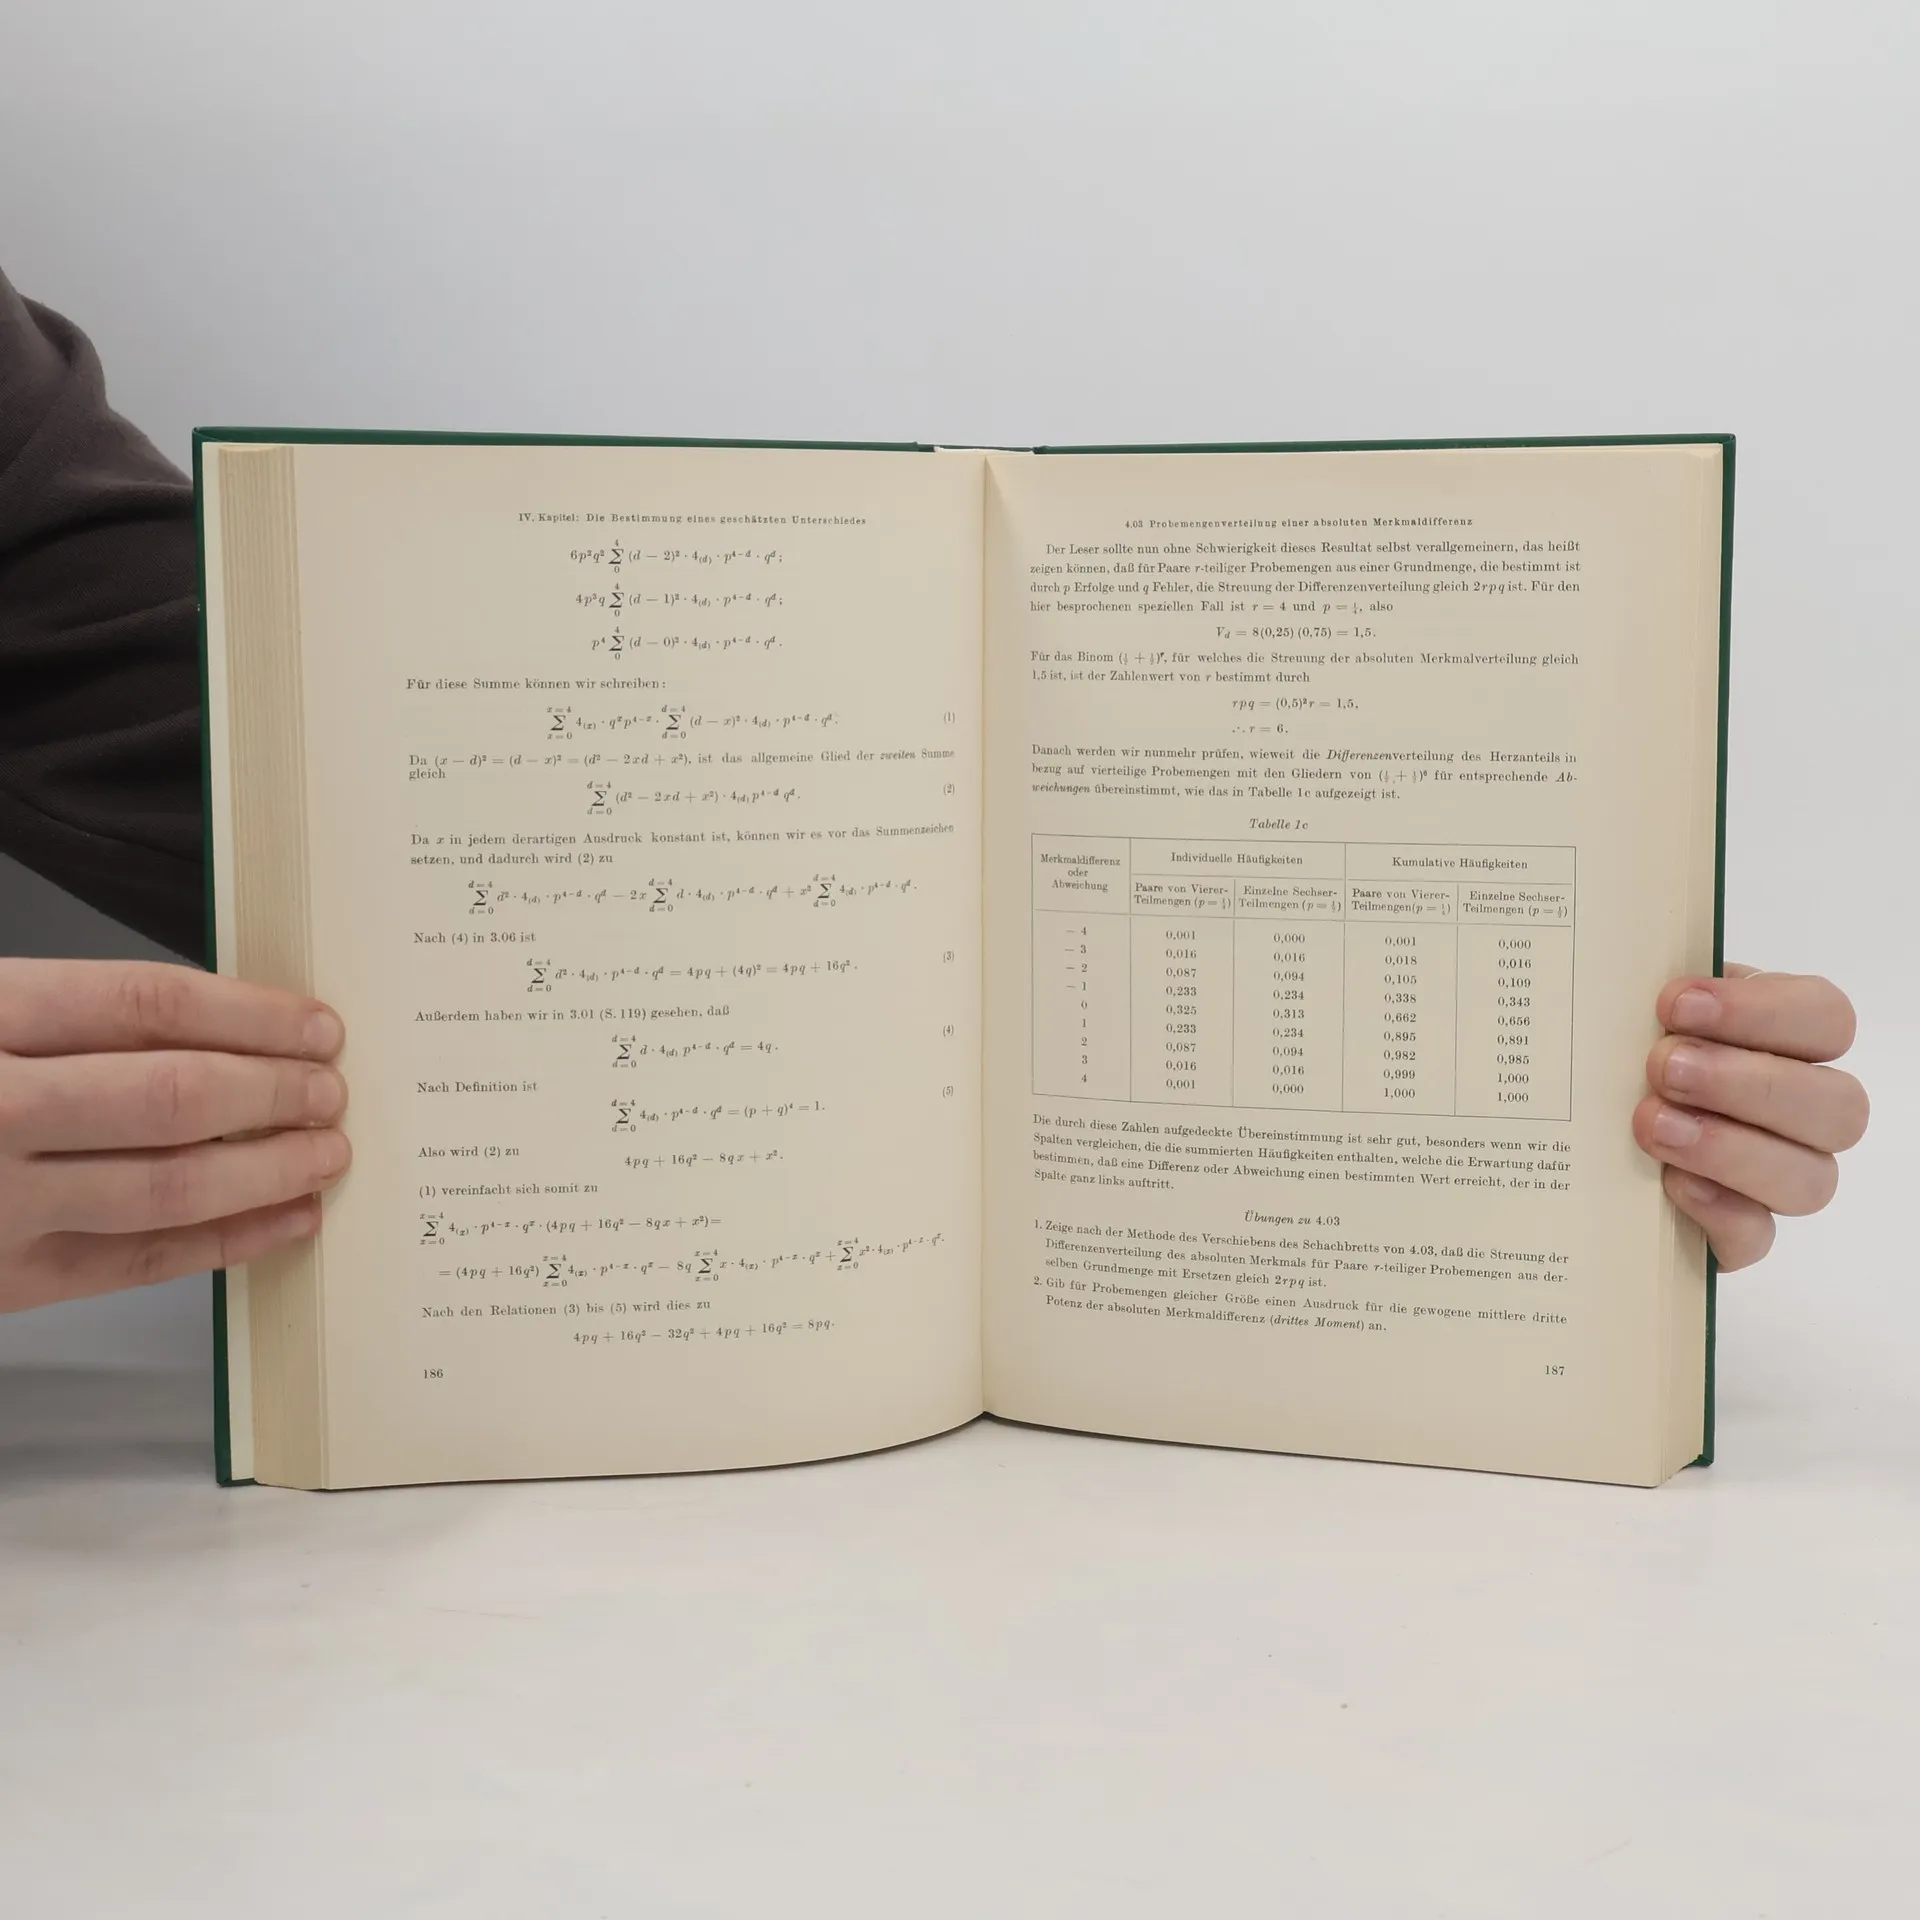 IV. Kapitel: Die Bestimmung eines geschätzten Unterschiedes
6p²q² ∑₀⁴ (d − 2)² · 4₍d₎ · p⁴⁻ᵈ · qᵈ;
4p³q ∑₀⁴ (d − 1)² · 4₍d₎ · p⁴⁻ᵈ · qᵈ;
p⁴ ∑₀⁴ (d − 0)² · 4₍d₎ · p⁴⁻ᵈ · qᵈ.
Für diese Summe können wir schreiben:
∑_{x=0}^{x=4} 4₍x₎ · qˣp⁴⁻ˣ · ∑_{d=0}^{d=4} (d − x)² · 4₍d₎ · p⁴⁻ᵈ · qᵈ. (1)
Da (x − d)² = (d − x)² = (d² − 2xd + x²), ist das allgemeine Glied der zweiten Summe
gleich
∑_{d=0}^{d=4} (d² − 2xd + x²) · 4₍d₎ p⁴⁻ᵈ qᵈ. (2)
Da x in jedem derartigen Ausdruck konstant ist, können wir es vor das Summenzeichen
setzen, und dadurch wird (2) zu
∑_{d=0}^{d=4} d² · 4₍d₎ · p⁴⁻ᵈ · qᵈ − 2x ∑_{d=0}^{d=4} d · 4₍d₎ · p⁴⁻ᵈ · qᵈ + x² ∑_{d=0}^{d=4} 4₍d₎ · p⁴⁻ᵈ · qᵈ.
Nach (4) in 3.06 ist
∑_{d=0}^{d=4} d² · 4₍d₎ · p⁴⁻ᵈ · qᵈ = 4pq + (4q)² = 4pq + 16q². (3)
Außerdem haben wir in 3.01 (S. 119) gesehen, daß
∑_{d=0}^{d=4} d · 4₍d₎ p⁴⁻ᵈ · qᵈ = 4q. (4)
Nach Definition ist
∑_{d=0}^{d=4} 4₍d₎ · p⁴⁻ᵈ · qᵈ = (p + q)⁴ = 1. (5)
Also wird (2) zu
4pq + 16q² − 8qx + x².
(1) vereinfacht sich somit zu
∑_{x=0}^{x=4} 4₍x₎ · p⁴⁻ˣ · qˣ · (4pq + 16q² − 8qx + x²) =
= (4pq + 16q²) ∑_{x=0}^{x=4} 4₍x₎ · p⁴⁻ˣ · qˣ − 8q ∑_{x=0}^{x=4} x · 4₍x₎ · p⁴⁻ˣ · qˣ + ∑_{x=0}^{x=4} x² · 4₍x₎ · p⁴⁻ˣ · qˣ.
Nach den Relationen (3) bis (5) wird dies zu
4pq + 16q² − 32q² + 4pq + 16q² = 8pq.
186
4.03 Probemengenverteilung einer absoluten Merkmaldifferenz
Der Leser sollte nun ohne Schwierigkeit dieses Resultat selbst verallgemeinern, das heißt
zeigen können, daß für Paare r-teiliger Probemengen aus einer Grundmenge, die bestimmt ist
durch p Erfolge und q Fehler, die Streuung der Differenzenverteilung gleich 2rpq ist. Für den
hier besprochenen speziellen Fall ist r = 4 und p = ¼, also
V_d = 8(0,25) (0,75) = 1,5.
Für das Binom (½ + ½)ʳ, für welches die Streuung der absoluten Merkmalverteilung gleich
1,5 ist, ist der Zahlenwert von r bestimmt durch
rpq = (0,5)²r = 1,5,
∴ r = 6.
Danach werden wir nunmehr prüfen, wieweit die Differenzenverteilung des Herzanteils in
bezug auf vierteilige Probemengen mit den Gliedern von (½ + ½)⁶ für entsprechende Ab-
weichungen übereinstimmt, wie das in Tabelle 1c aufgezeigt ist.
Tabelle 1c
Merkmaldifferenz oder Abweichung | Individuelle Häufigkeiten | Kumulative Häufigkeiten
Paare von Vierer- | Einzelne Sechser- | Paare von Vierer- | Einzelne Sechser-
Teilmengen (p = ¼) | Teilmengen (p = ½) | Teilmengen (p = ¼) | Teilmengen (p = ½)
− 4 0,001 0,000 0,001 0,000
− 3 0,016 0,016 0,018 0,016
− 2 0,087 0,094 0,105 0,109
− 1 0,233 0,234 0,338 0,343
0 0,325 0,313 0,662 0,656
1 0,233 0,234 0,895 0,891
2 0,087 0,094 0,982 0,985
3 0,016 0,016 0,999 1,000
4 0,001 0,000 1,000 1,000
Die durch diese Zahlen aufgedeckte Übereinstimmung ist sehr gut, besonders wenn wir die
Spalten vergleichen, die die summierten Häufigkeiten enthalten, welche die Erwartung dafür
bestimmen, daß eine Differenz oder Abweichung einen bestimmten Wert erreicht, der in der
Spalte ganz links auftritt.
Übungen zu 4.03
1. Zeige nach der Methode des Verschiebens des Schachbretts von 4.03, daß die Streuung der
Differenzenverteilung des absoluten Merkmals für Paare r-teiliger Probemengen aus der-
selben Grundmenge mit Ersetzen gleich 2rpq ist.
2. Gib für Probemengen gleicher Größe einen Ausdruck für die gewogene mittlere dritte
Potenz der absoluten Merkmaldifferenz (drittes Moment) an.
187